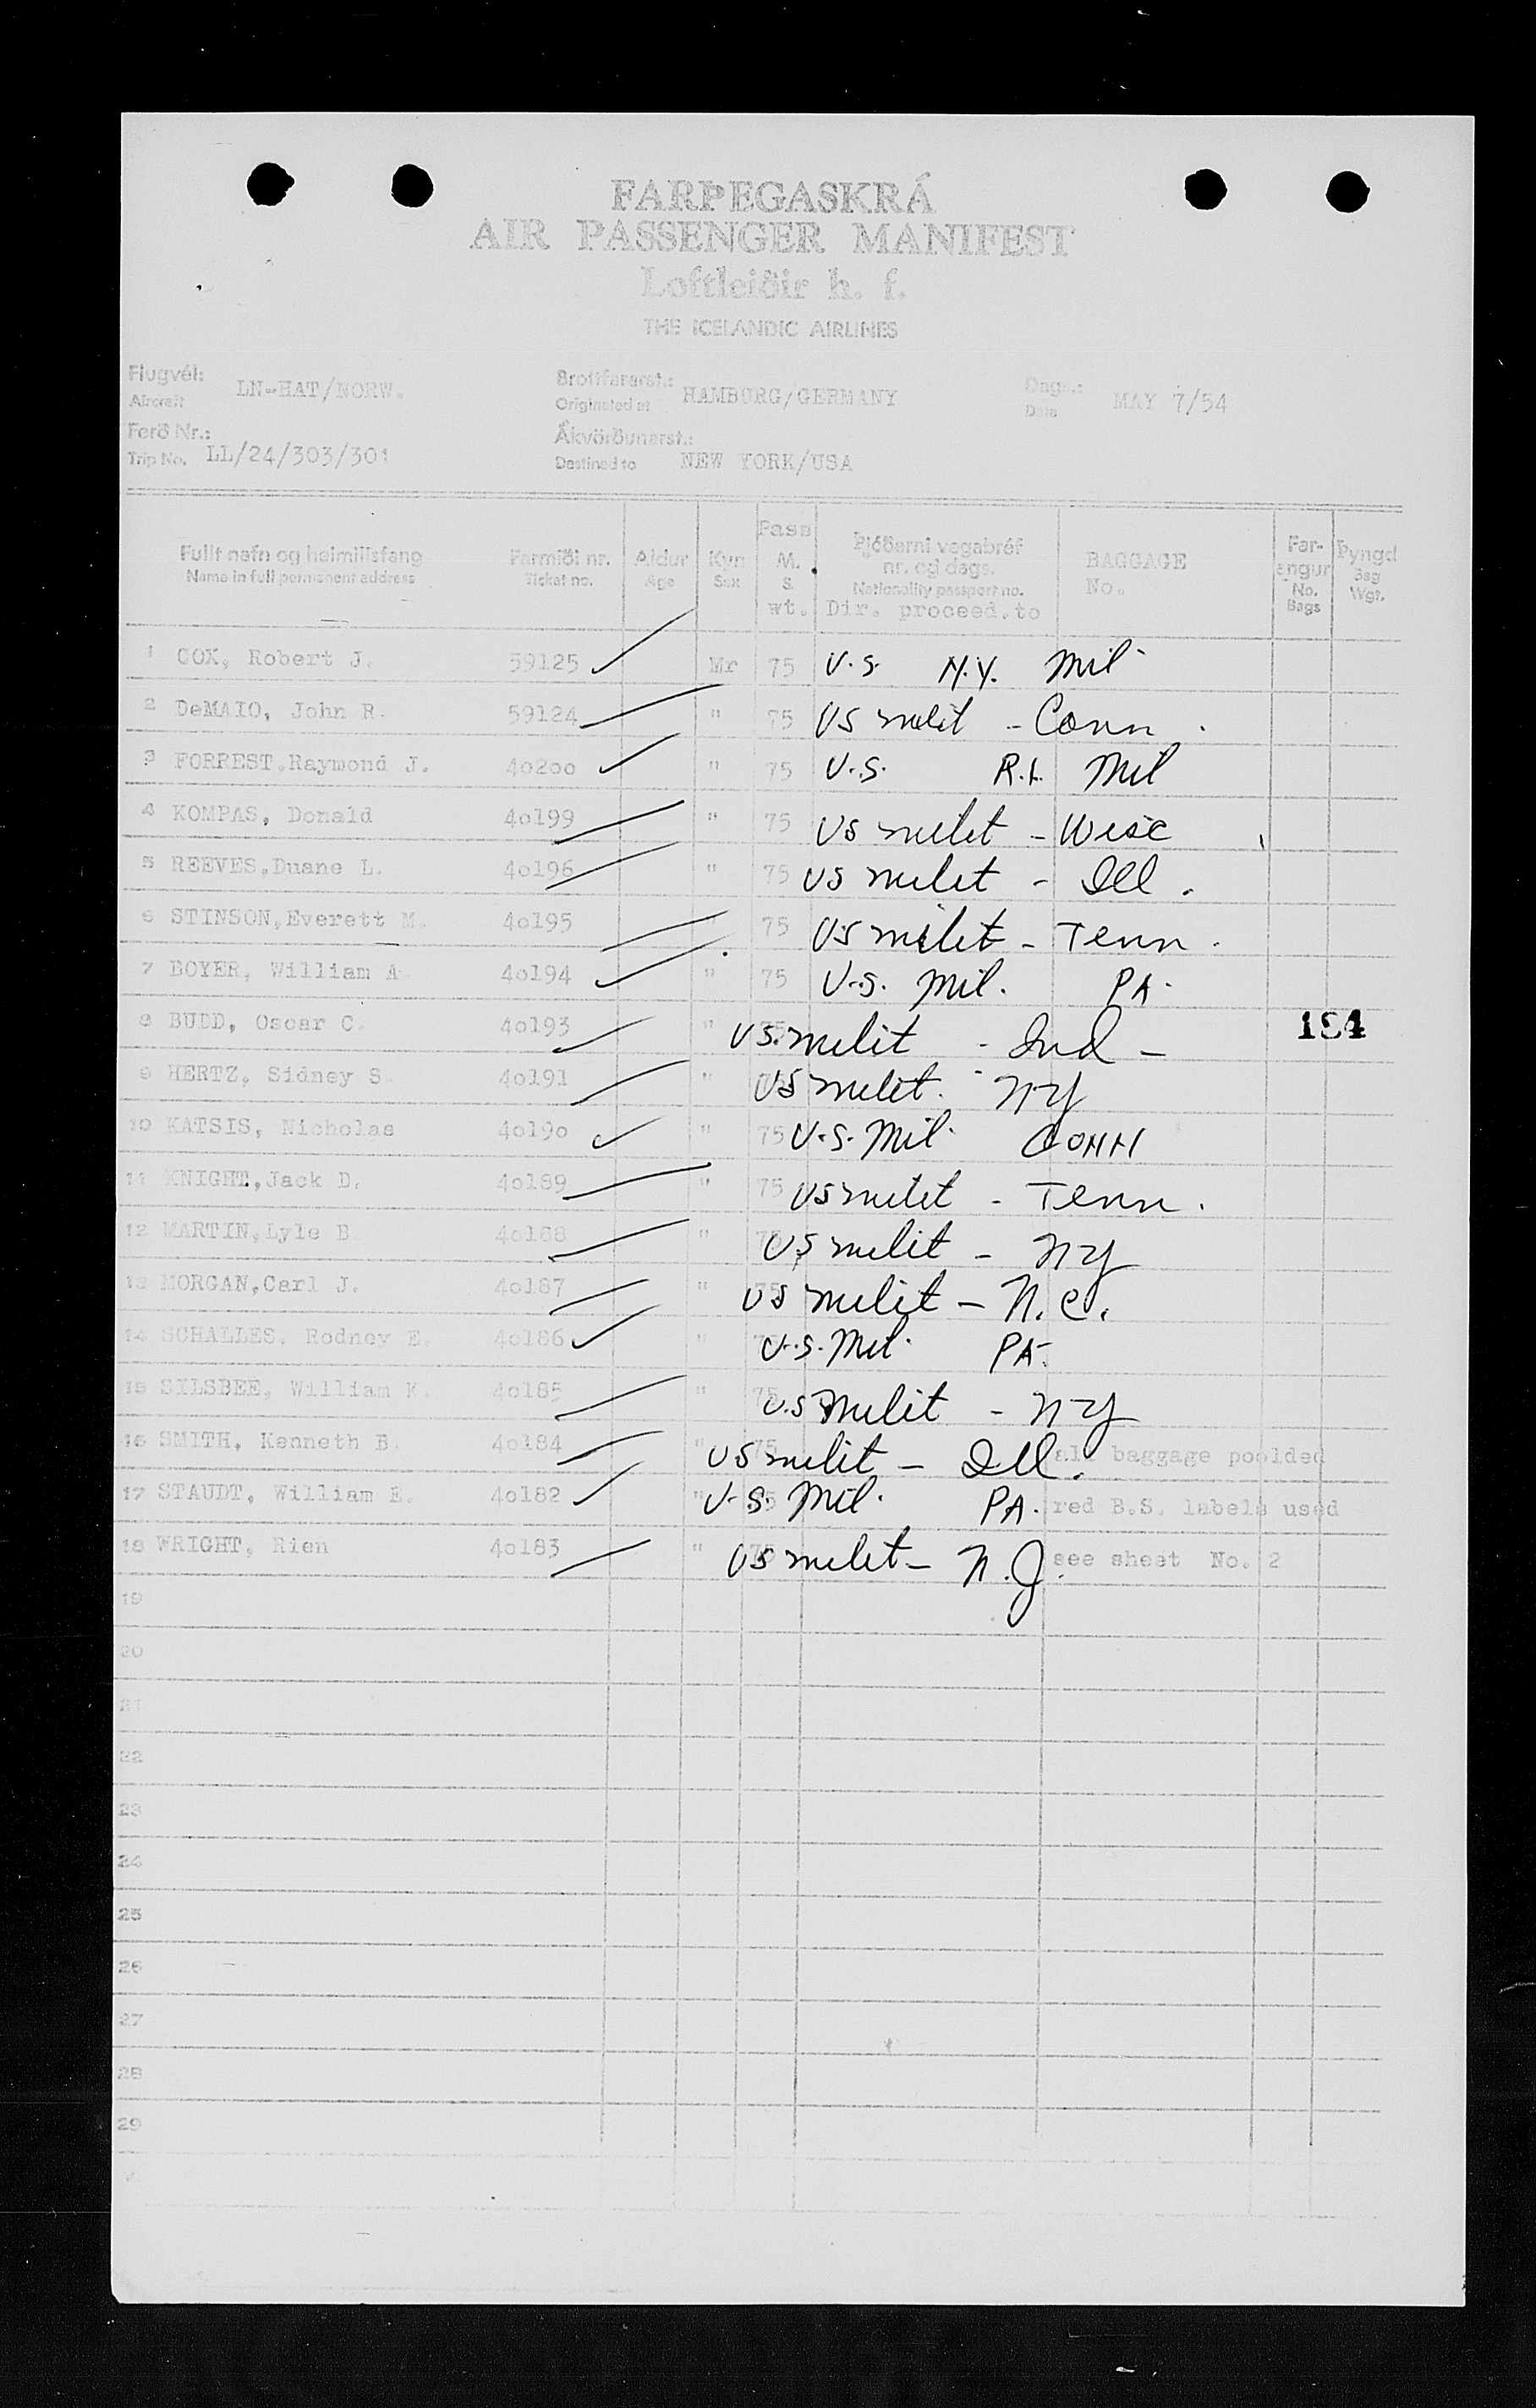 FARÞEGASKRÁ
AIR PASSENGER MANIFEST
Loftleiðir h. f.
THE ICELANDIC AIRLINES
Flugvél: Aircraft LN-HAT/NORW. Brottfararst.: Originated at HAMBURG/GERMANY Dags.: Date MAY 7/54
Ferð Nr.: Trip No. LL/24/303/301 Ákvörðunarst.: Destined to NEW YORK/USA
Fullt nafn og heimilisfang Name in full permanent address Farmiði nr. Ticket no. Aldur Age Kyn Sex Pass M. s. wt. Þjóðerni vegabréf nr. og dags. Nationality passport no. Dir. proceed.to BAGGAGE No. Far-angur No. Bags Þyngd Bag Wgt.
1 COX, Robert J. 59125 Mr 75 U.S. N.Y. Mil
2 DeMAIO, John R. 59124 " 75 US milit - Conn.
3 FORREST,Raymond J. 40200 " 75 U.S. R.I. Mil
4 KOMPAS, Donald 40199 " 75 US milit - Wisc
5 REEVES,Duane L. 40196 " 75 US milit - Ill.
6 STINSON,Everett M. 40195 75 US milit - Tenn.
7 BOYER, William A 40194 " 75 U.S. Mil. PA.
8 BUDD, Oscar C. 40193 " US. milit - Ind - 184
9 HERTZ, Sidney S. 40191 " US milit. - NY
10 KATSIS, Nicholas 40190 " 75 U.S. Mil. CONN
11 KNIGHT,Jack D. 40189 " 75 US milit - Tenn.
12 MARTIN,Lyle B 40188 " 75 US milit - NY
13 MORGAN,Carl J. 40187 " 75 US milit - N.C.
14 SCHALLES, Rodney E. 40186 " 75 U.S. Mil. PA.
15 SILSBEE, William K. 40185 " 75 U.S milit - NY
16 SMITH, Kenneth B. 40184 " 75 US milit - Ill. all baggage poolded
17 STAUDT, William E. 40182 " 75 U.S. Mil. PA. red B.S. labels used
18 WRIGHT, Rien 40183 " 75 US milit - N.J. see sheet No. 2
19
20
21
22
23
24
25
26
27
28
29